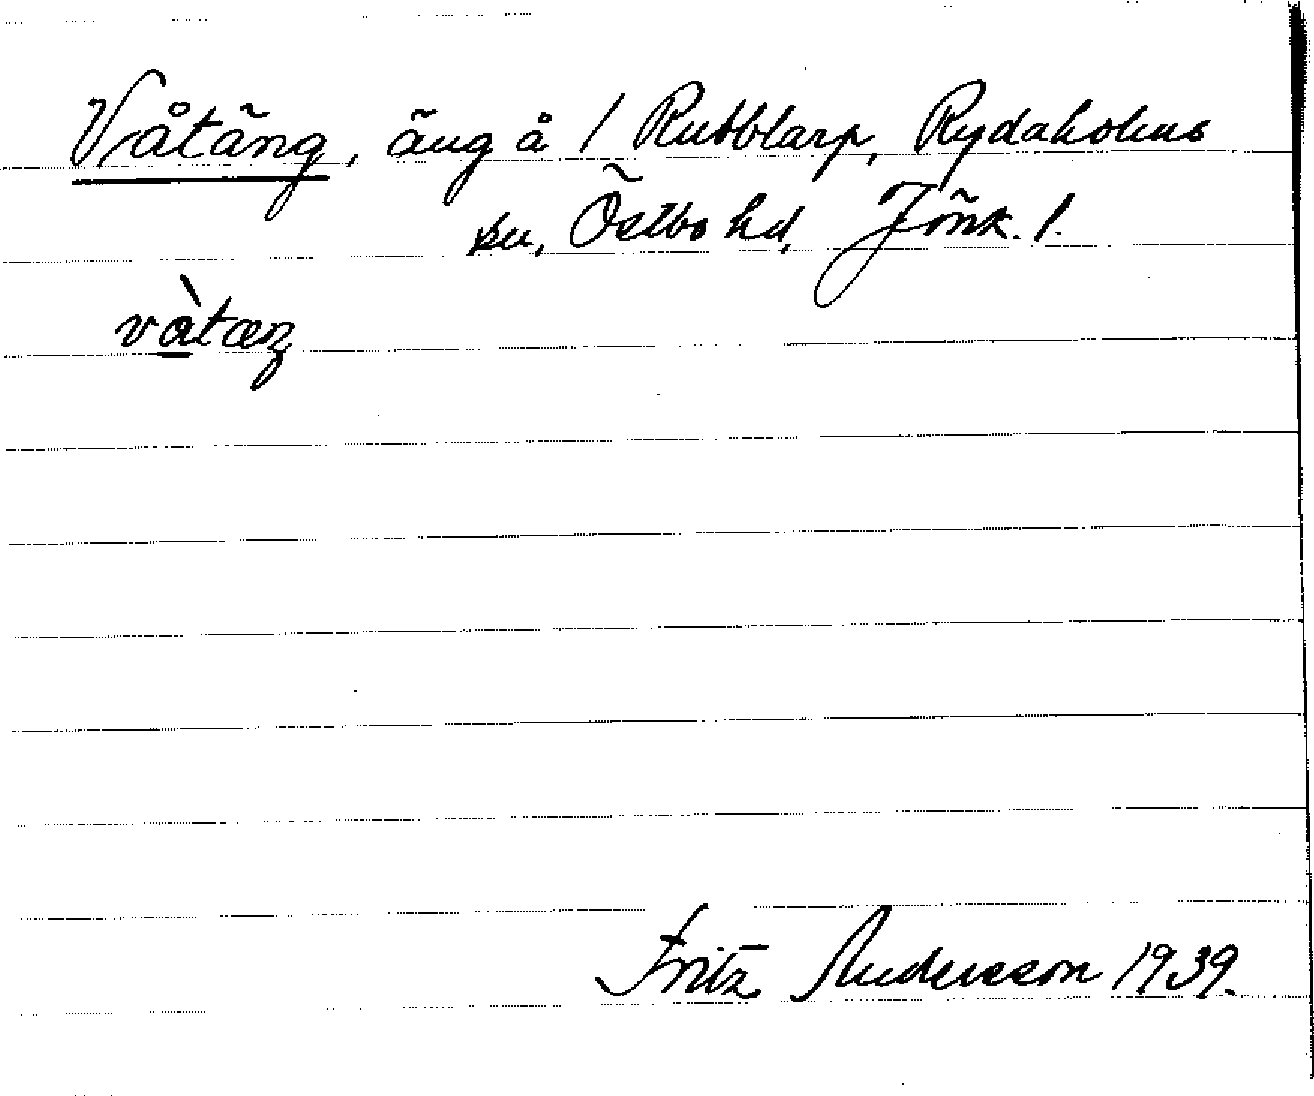 Våtäng, äng å 1 Rubblarp, Rydaholms
sn, Östbo hd, Jönk. l.
vàtæŋ
Fritz Andersson 1939.